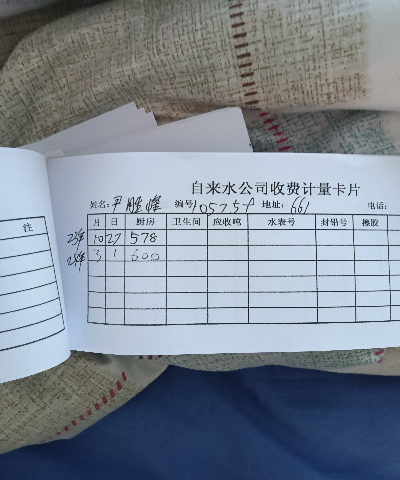 自来水公司收费计量卡片
姓名：尹胜辉 编号 105758 地址：661 电话：
注 月 日 厨房 卫生间 应收吨 水表号 封铅号 橡胶
23年 10 27 578
25年 3 1 600